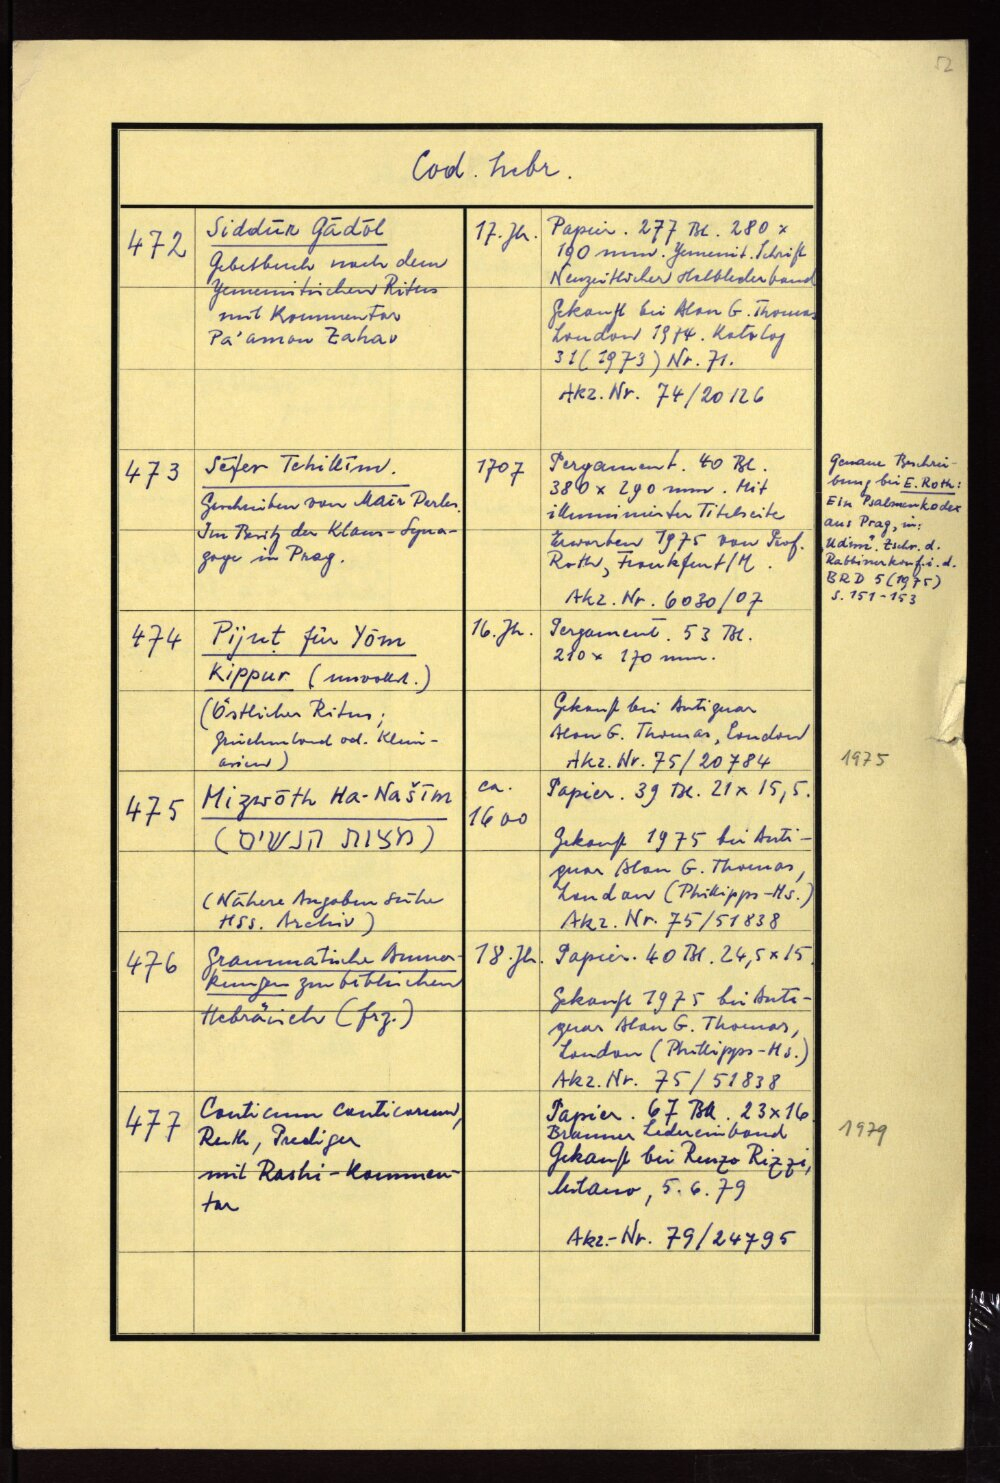 52
Cod. hebr.
472
Siddūr Gādōl
Gebetbuch nach dem
Yemenitischen Ritus
mit Kommentar
Pa'amon Zahav
17. Jh.
Papier. 277 Bl. 280 x
190 mm. Yemenit. Schrift
Neuzeitlicher Halblederband
Gekauft bei Alan G. Thomas
London 1974. Katalog
31 (1973) Nr. 71.
Akz. Nr. 74/20126
473
Sēfer Tehillīm.
Geschrieben von Maïr Perles.
Im Besitz der Klaus-Syna-
goge in Prag.
1707
Pergament. 40 Bl.
380 x 290 mm. Mit
illuminierter Titelseite
Erworben 1975 von Prof.
Roth, Frankfurt/M.
Akz. Nr. 6030/07
Genaue Beschrei-
bung bei E. Roth:
Ein Psalmenkodex
aus Prag, in:
"Udim". Zschr. d.
Rabbinerkonf. i. d.
BRD 5 (1975)
S. 151-153
474
Pijuṭ für Yōm
Kippur (unvollst.)
(Östlicher Ritus;
Griechenland od. Klein-
asien)
16. Jh.
Pergament. 53 Bl.
210 x 170 mm.
Gekauft bei Antiquar
Alan G. Thomas, London
Akz. Nr. 75/20784
1975
475
Mizwōth Ha-Našīm
(מצות הנשים)
(Nähere Angaben siehe
HSS. Archiv)
ca.
1600
Papier. 39 Bl. 21 x 15,5.
Gekauft 1975 bei Anti-
quar Alan G. Thomas,
London (Phillipps-Hs.)
Akz. Nr. 75/51838
476
Grammatische Anmer-
kungen zum biblischen
Hebräisch (frz.)
18. Jh.
Papier. 40 Bl. 24,5 x 15.
Gekauft 1975 bei Anti-
quar Alan G. Thomas,
London (Phillipps-Hs.)
Akz. Nr. 75/51838
477
Canticum canticorum,
Ruth, Prediger
mit Rashi-Kommen-
tar
Papier. 67 Bll. 23 x 16
Brauner Ledereinband
Gekauft bei Renzo Rizzi,
Milano, 5.6.79
Akz.-Nr. 79/24795
1979